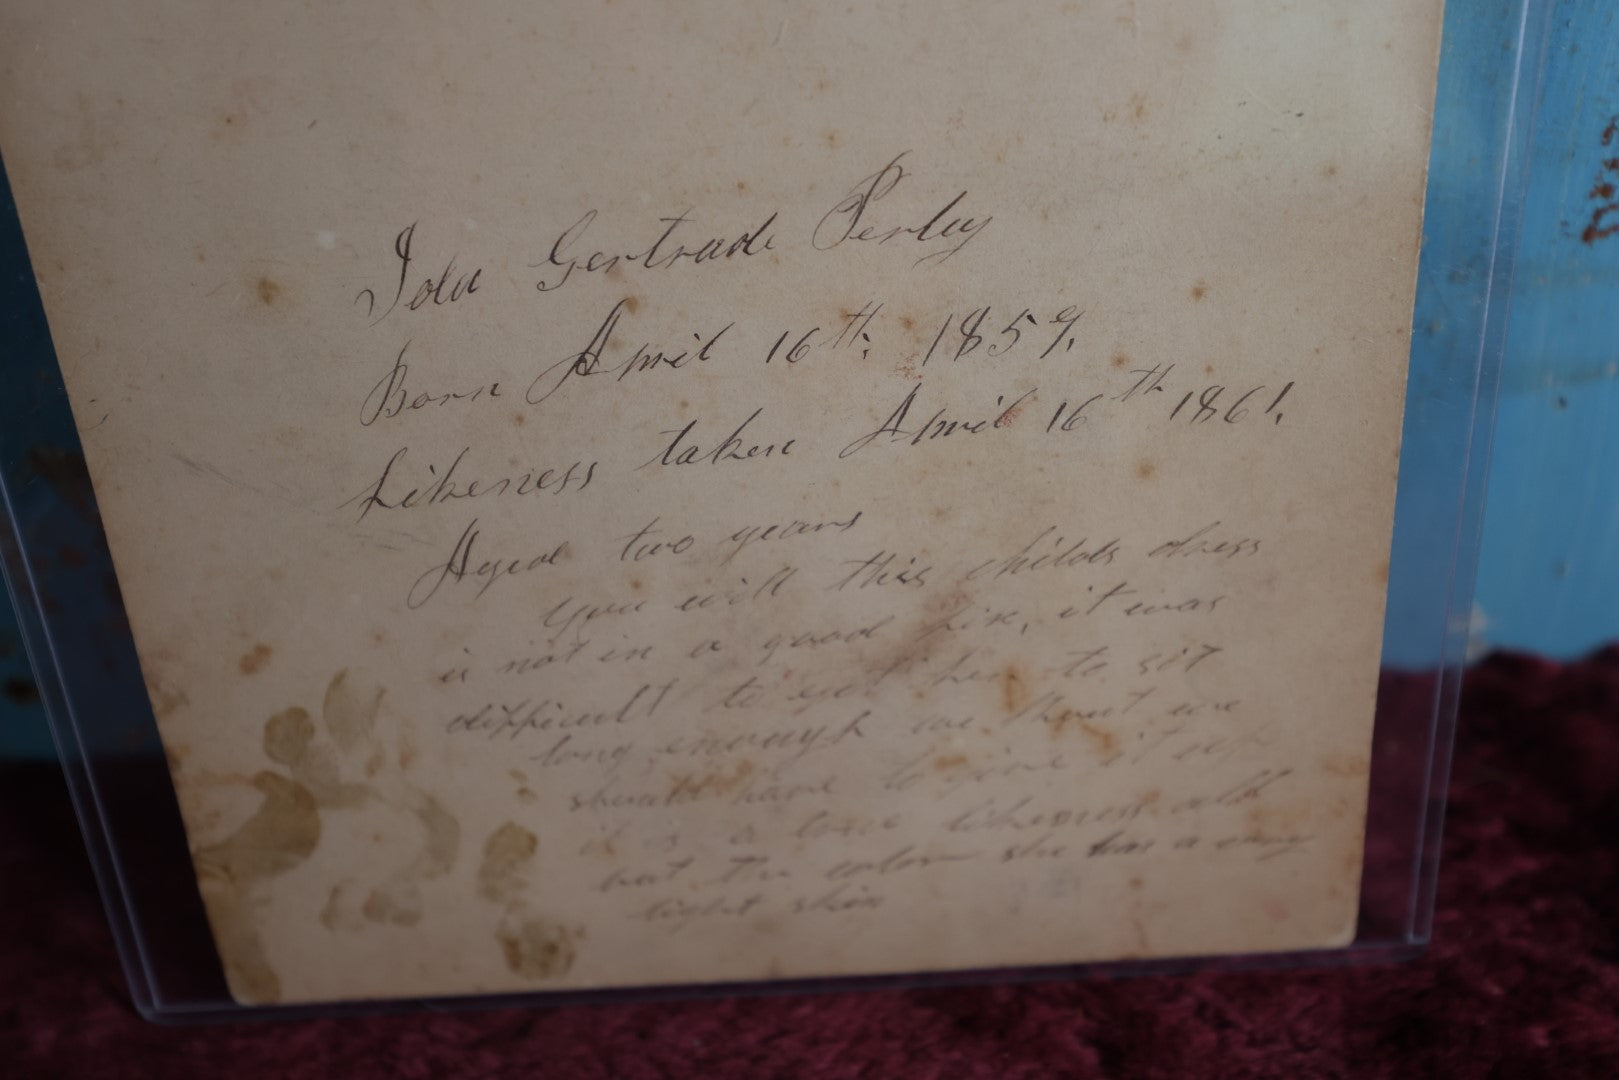 Iola Gertrude Perley
Born April 16th, 1859.
Likeness taken April 16th 1861.
Aged two years
you will this childs dress
is not in a good fix, it was
difficult to get her to sit
long enough we thout we
should have to give it up
it is a likeness all
but the color she has a very
light skin